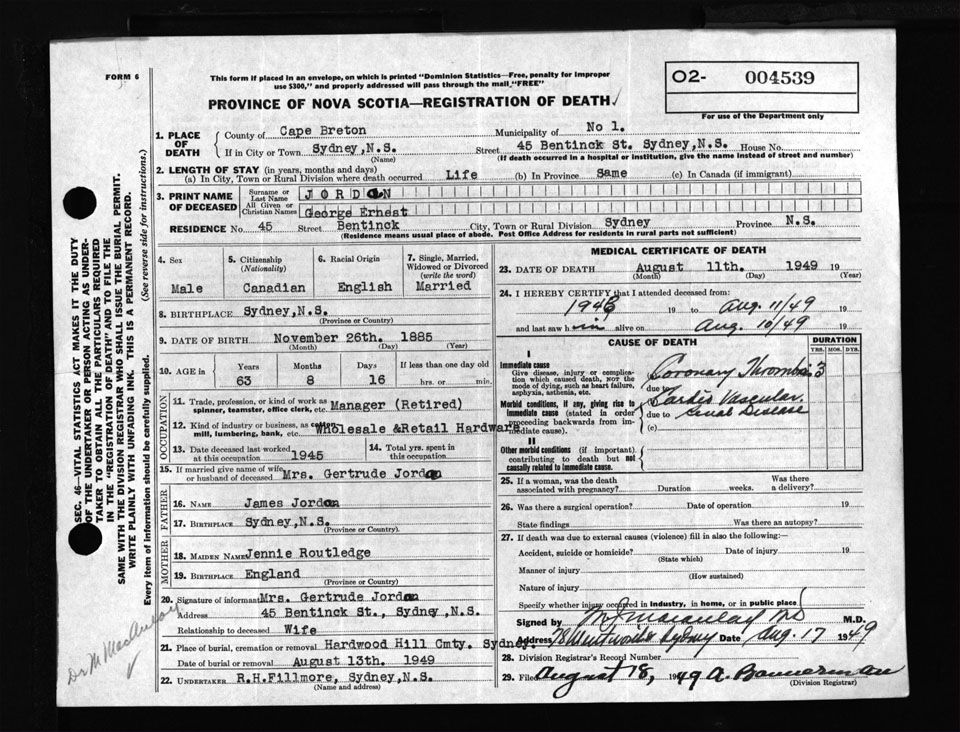 FORM 6
This form if placed in an envelope, on which is printed "Dominion Statistics—Free, penalty for improper
use $300," and properly addressed will pass through the mail "FREE"
O2- 004539
For use of the Department only
PROVINCE OF NOVA SCOTIA—REGISTRATION OF DEATH
1. PLACE OF DEATH
County of Cape Breton Municipality of No 1.
If in City or Town Sydney,N.S. Street 45 Bentinck St. Sydney,N.S. House No.
(Name) (If death occurred in a hospital or institution, give the name instead of street and number)
2. LENGTH OF STAY (in years, months and days)
(a) In City, Town or Rural Division where death occurred Life (b) In Province Same (c) In Canada (if immigrant)
3. PRINT NAME OF DECEASED
Surname or Last Name JORDAN
All Given or Christian Names George Ernest
RESIDENCE No. 45 Street Bentinck City, Town or Rural Division Sydney Province N.S.
(Residence means usual place of abode. Post Office Address for residents in rural parts not sufficient)
4. Sex 5. Citizenship (Nationality) 6. Racial Origin 7. Single, Married, Widowed or Divorced (write the word)
Male Canadian English Married
8. BIRTHPLACE Sydney,N.S.
(Province or Country)
9. DATE OF BIRTH November 26th. 1885
(Month) (Day) (Year)
10. AGE in Years Months Days If less than one day old
63 8 16 hrs. or min.
OCCUPATION
11. Trade, profession, or kind of work as
spinner, teamster, office clerk, etc. Manager (Retired)
12. Kind of industry or business, as cotton
mill, lumbering, bank, etc. Wholesale &Retail Hardware
13. Date deceased last worked at this occupation 1945 14. Total yrs. spent in this occupation
15. If married give name of wife
or husband of deceased Mrs. Gertrude Jordan
FATHER
16. NAME James Jordan
17. BIRTHPLACE Sydney,N.S.
(Province or Country).
MOTHER
18. MAIDEN NAME Jennie Routledge
19. BIRTHPLACE England
(Province or Country)
20. Signature of informant Mrs. Gertrude Jordan
Address 45 Bentinck St., Sydney,N.S.
Relationship to deceased Wife
21. Place of burial, cremation or removal Hardwood Hill Cmty. Sydney.
Date of burial or removal August 13th. 1949
22. UNDERTAKER R.H.Fillmore, Sydney,N.S.
(Name and address)
MEDICAL CERTIFICATE OF DEATH
23. DATE OF DEATH August 11th. 1949 19
(Month) (Day) (Year)
24. I HEREBY CERTIFY that I attended deceased from:
1946 19 to Aug. 11/49 19
and last saw him alive on Aug. 10/49 19
CAUSE OF DEATH DURATION
YRS. MOS. DYS.
I
Immediate cause
Give disease, injury or complication which caused death, NOT the mode of dying, such as heart failure, asphyxia, asthenia, etc.
Coronary Thrombosis 3
due to
Morbid conditions, if any, giving rise to immediate cause (stated in order proceeding backwards from immediate cause).
Cardio Vascular
due to Renal Disease
(c)
II
Other morbid conditions (if important) contributing to death but not causally related to immediate cause.
25. If a woman, was the death associated with pregnancy? Duration weeks. Was there a delivery?
26. Was there a surgical operation? Date of operation 19
State findings Was there an autopsy?
27. If death was due to external causes (violence) fill in also the following:—
Accident, suicide or homicide? Date of injury 19
(State which)
Manner of injury
(How sustained)
Nature of injury
Specify whether injury occurred in industry, in home, or in public place
Signed by M J Macaulay MD M.D.
Address 78 Wentworth Sydney Date Aug. 17 1949
28. Division Registrar's Record Number
29. Filed August 18, 1949 A. Bannerman
(Division Registrar)
SEC. 46—VITAL STATISTICS ACT MAKES IT THE DUTY
OF THE UNDERTAKER OR PERSON ACTING AS UNDER-
TAKER TO OBTAIN ALL THE PARTICULARS REQUIRED
IN THE "REGISTRATION OF DEATH" AND TO FILE THE
SAME WITH THE DIVISION REGISTRAR WHO SHALL ISSUE THE BURIAL PERMIT.
WRITE PLAINLY WITH UNFADING INK. THIS IS A PERMANENT RECORD.
Every item of information should be carefully supplied. (See reverse side for instructions.)